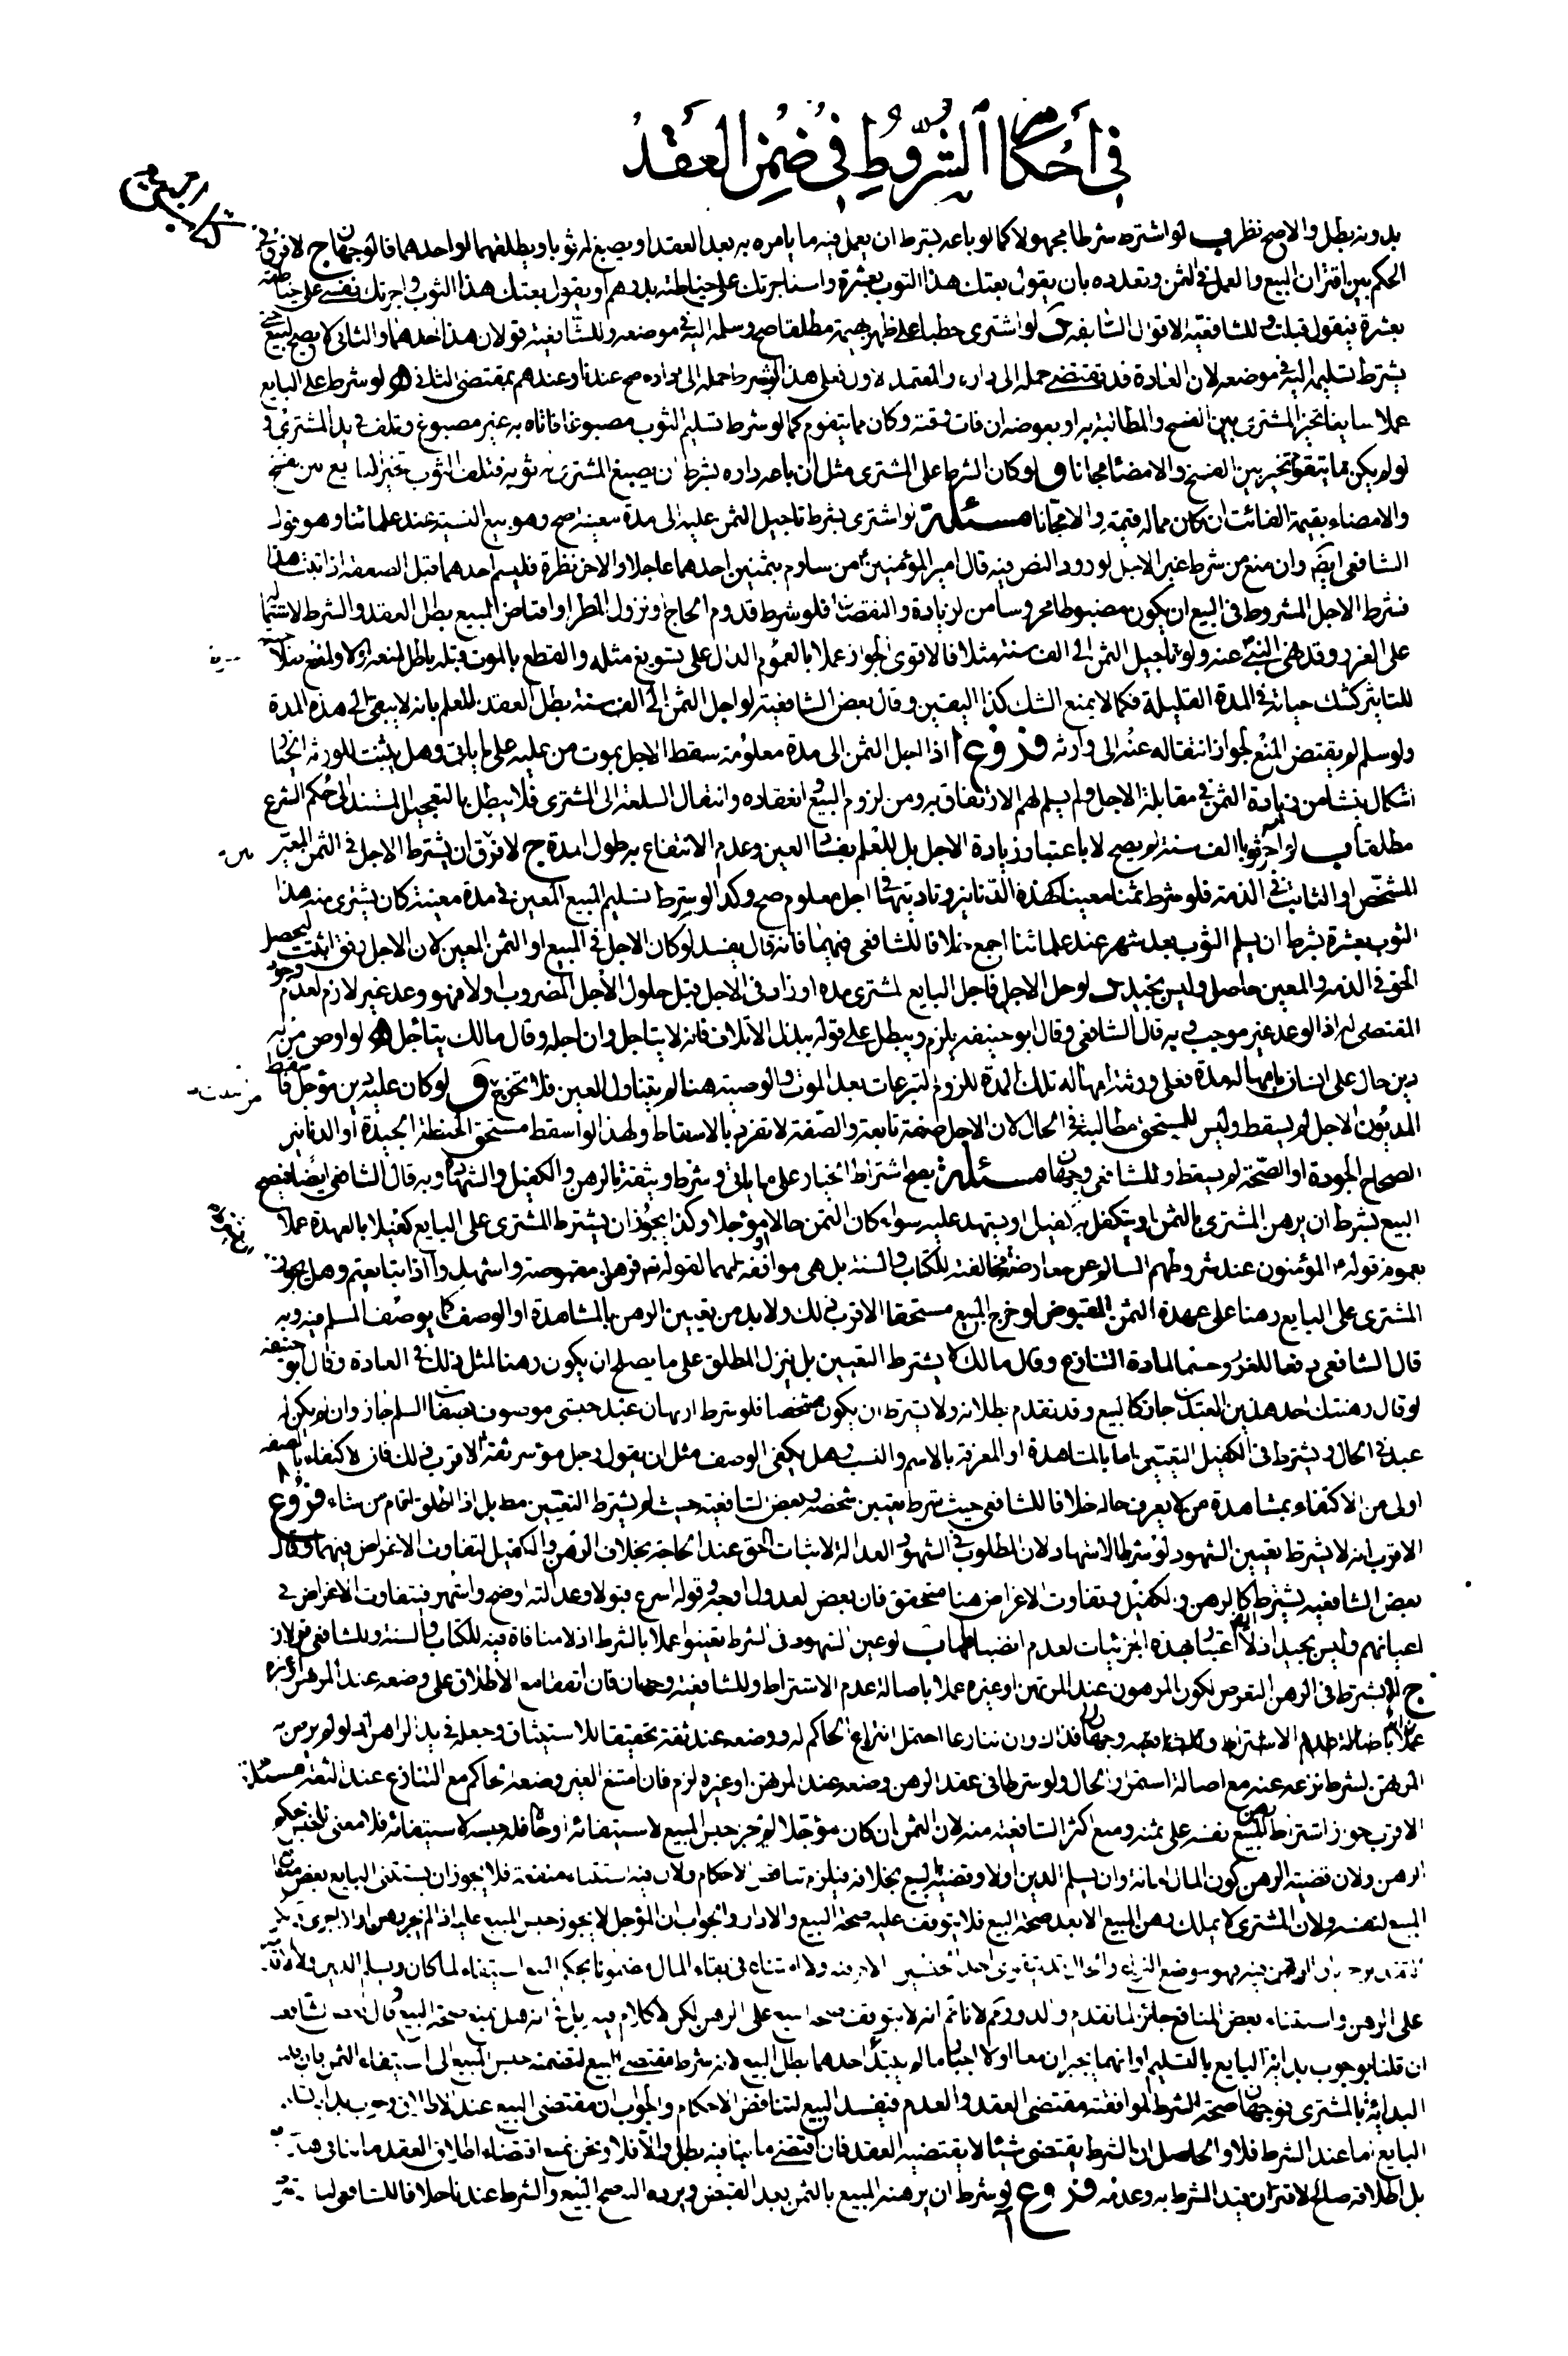 في أحكام الشروط في ضمن العقد
بدونه بطل والاصح نظر ب لو اشترط شرطا مجهولا كما لو باعه بشرط ان يعمل فيه ما يامره به بعد العقد او يصبغ له ثوبا ويطلقهما او احدهما فالوجهان ج لا فرق في
الحكم بين اقتران البيع والعمل في الثمن وتعدده بان يقول بعتك هذا الثوب بعشرة واستاجرتك على خياطته بدرهم او يقول بعتك هذا الثوب واجرتك نفسي على خياطته
بعشرة فيقول قبلت وللشافعية الاقوال السابقة د لو اشترى حطبا على ظهر بهيمة مطلقا صح وسلمه اليه في موضعه وللشافعية قولان هذا احدهما والثاني لا يصح البيع حتى
يشترط تسليمه اليه في موضعه لان العادة قد تقتضي حمله الى داره والمعتمد الاول فعلى هذا لو شرط حمله الى داره صح عندنا وعندهم بمقتضى الثاني ه لو شرط على البايع
عملا سايغا تخير المشتري بين الفسخ والمطالبة به او بعوضه ان فات وقته وكان مما يتقوم كما لو شرط تسليم الثوب مصبوغا فاتاه به غير مصبوغ وتلف في يد المشتري و
لو لم يكن مما يتقوم تخير بين الفسخ والامضاء مجانا و لو كان الشرط على المشتري مثل ان باعه داره بشرط ان يصبغ المشتري له ثوبه فتلف الثوب تخير البايع بين الفسخ
والامضاء بقيمة الفائت ان كان مما له قيمة والا مجانا مسئلة لو اشترى بشرط تاجيل الثمن عليه الى مدة معينة صح وهو بيع النسية عند علمائنا وهو قول
الشافعي ايضا وان منع من شرط غير الاجل لورود النص فيه قال امير المؤمنين من ساوم بثمنين احدهما عاجلا والاخر نظرة فليسم احدهما قبل الصفقة اذا ثبت هذا
فشرط الاجل المشروط في البيع ان يكون مضبوطا محروسا من الزيادة والنقصان فلو شرط قدوم الحاج ونزول المطر او اقباض المبيع بطل العقد والشرط لاشتماله
على الغرر وقد نهى النبي عنه ولو تاجيل الثمن الى الف سنة مثلا فالاقوى الجواز عملا بالعموم الدال على تسويغ مثله والقطع بالموت قبله باطل لمنعه اولا ولمنع صلاحيته
للتاثير كشك حياته في المدة القليلة فكما لا يمنع الشك كذا اليقين وقال بعض الشافعية لو اجل الثمن الى الف سنة بطل العقد للعلم بانه لا يبقى الى هذه المدة
ولو سلم لم يقتض المنع لجواز انتقاله عنه الى وارثه فروع ا اذا اجل الثمن الى مدة معلومة سقط الاجل بموت من عليه على ما ياتي وهل يثبت للورثة الخيار
اشكال ينشا من زيادة الثمن في مقابلة الاجل ولم يسلم لهم الارتفاق به ومن لزوم البيع وانعقاده وانتقال السلعة الى المشتري فلا يبطل بالتعجيل المستند الى حكم الشرع
مطلقا ب لو آجر ثوبا الف سنة لم يصح لا باعتبار زيادة الاجل بل للعلم بفساد العين وعدم الانتفاع به طول المدة ج لا فرق ان يشترط الاجل في الثمن المعين
المشخص او الثابت في الذمة فلو شرط ثمنا معينا كهذه الدنانير وتاديتها في اجل معلوم صح وكذا لو شرط تسليم المبيع المعين في مدة معينة كان يشترى منه هذا
الثوب بعشرة بشرط ان يسلم الثوب بعد شهر عند علمائنا اجمع خلافا للشافعي فيهما فانه قال يفسد لو كان الاجل في المبيع او الثمن المعين لان الاجل رفق اثبت ليحصل
الحق في الذمة والمعين حاصل وليس بجيد د لو حل الاجل فاجل البايع المشتري مدة او زاد في الاجل قبل حلول الاجل المضروب اولا فهو وعد غير لازم لعدم وجود
المقتضي له اذ الوعد غير موجب وبه قال الشافعي وقال ابو حنيفة يلزم ويبطل على قوله ببذل الاتلاف فانه لا يتاجل وان اجله وقال مالك يتاجل ه لو اوصى من له
دين حال على انسان بامهاله مدة فعلى ورثته امهاله تلك المدة للزوم التبرعات بعد الموت والوصية هنا لم يتناول العين فلا تخرج و لو كان عليه دين مؤجل فاسقط
المديون الاجل لم يسقط وليس للمستحق مطالبته في الحال لان الاجل صفة تابعة والصفة لا تفرد بالاسقاط ولهذا لو اسقط مستحق الحنطة الجيدة او الدنانير
الصحاح الجودة او الصحة لم يسقط وللشافعي وجهان مسئلة يصح اشتراط الخيار على ما ياتي وشرط وثيقة بالرهن والكفيل والشهادة وبه قال الشافعي ايضا فيصح
البيع بشرط ان يرهن المشتري بالثمن او يتكفل به كفيل او يشهد عليه سواء كان الثمن حالا او مؤجلا وكذا يجوز ان يشترط المشتري على البايع كفيلا بالعهدة عملا
بعموم قوله المؤمنون عند شروطهم السالم عن معارضة مخالفته للكتاب والسنة بل هي موافقة لهما لقوله تعالى فرهان مقبوضة واشهدوا اذا تبايعتم وهل يجوز
المشتري على البايع رهنا على عهدة الثمن المقبوض لو خرج المبيع مستحقا الاقرب ذلك ولا بد من تعيين الرهن بالمشاهدة او الوصف كما يوصف المسلم فيه وبه
قال الشافعي دفعا للغرر وحسما لمادة التنازع وقال مالك لا يشترط التعيين بل ينزل المطلق على ما يصلح ان يكون رهنا لمثل ذلك في العادة وقال ابو حنيفة
لو قال رهنتك احد هذين العبدين جاز كالبيع وقد تقدم بطلانه ولا يشترط ان يكون مشخصا فلو شرط ارتهان عبد حبشي موصوف بصفات السلم جاز وان لم يكن له
عبد في الحال ويشترط في الكفيل التعيين اما بالمشاهدة او المعرفة بالاسم والنسب وهل يكفي الوصف مثل ان يقول رجل موسر ثقة الاقرب ذلك فان الاكتفاء بالصفة
اولى من الاكتفاء بمشاهدة من لا يعرف حاله خلافا للشافعي حيث شرط تعيين شخصه وبعض الشافعية حيث لم يشترط التعيين مط بل اذا اطلق اقام من شاء فروع ا
الاقرب انه لا يشترط تعيين الشهود لو شرط الاشهاد لان المطلوب في الشهود العدالة لاثبات الحق عند الحاجة بخلاف الرهن والكفيل لتفاوت الاغراض فيهما وقال
بعض الشافعية يشترط كالرهن والكفيل وتفاوت الاغراض هنا متحقق فان بعض العدول اوجه وقوله اسرع قبولا وعدالته اوضح واشهر فتتفاوت الاغراض في
اعيانهم وليس بجيد اذ لا اعتبار بهذه الجزئيات لعدم انضباطها ب لو عين الشهود في الشرط تعينوا عملا بالشرط اذ لا منافاة فيه للكتاب والسنة وللشافعي قولان
ج لا يشترط في الرهن التعرض لكون المرهون عند المرتهن او غيره عملا باصالة عدم الاشتراط وللشافعية وجهان فان اتفقا مع الاطلاق على وضعه عند المرتهن او غيره
عملا باصالة عدم الاشتراط وللشافعية وجهان فذاك وان تنازعا احتمل انتزاع الحاكم له ووضعه عند ثقة تحقيقا للاستيثاق وجعله في يد الراهن اذ لو لم يرض به
المرتهن لشرط نزعه عنه مع اصالة استمرار الحال ولو شرطا في عقد الرهن وضعه عند المرتهن او غيره لزم فان امتنع الغير وضعه الحاكم مع التنازع عند الثقة مسئلة
الاقرب جواز اشتراط رهن المبيع نفسه على ثمنه ومنع اكثر الشافعية منه لان الثمن ان كان مؤجلا لم يجز حبس المبيع لاستيفائه او حالا فله حبسه لاستيفائه فلا معنى للحبس بحكم
الرهن ولان قضية الرهن كون المال امانة وان يسلم الدين اولا وقضية البيع بخلافه فيلزم تناقض الاحكام ولان فيه استثناء منفعة فلا يجوز ان يستثنى البايع بعض منافع
المبيع لنفسه ولان المشتري لا يملك رهن المبيع الا بعد صحة البيع فلا يتوقف عليه صحة البيع والا دار والجواب ان المؤجل لا يجوز حبس المبيع عليه اذا لم يجر رهن اما اذا جرى
على الرهن واستثناء بعض المنافع جائز لما تقدم والدور لانا نقول انه لا يتوقف صحة البيع على الرهن لكن لا كلام فيه
ان قلنا بوجوب بداية البايع بالتسليم او انهما يجبران معا او لا اجبار ما لم يبتدئ احدهما بطل البيع لانه شرط مقتضى البيع لتضمنه حبس المبيع الى استيفاء الثمن
البداية بالمشتري فوجهان صحة الشرط لموافقته مقتضى العقد والعدم فيفسد البيع لتناقض الاحكام والجواب ان مقتضى البيع عند الاطلاق وجوب بداية
البايع اما عند الشرط فلا والحاصل ان الشرط يقتضي شيئا لا يقتضيه العقد فان اقتضى ما ينافيه بطل والا فلا ونحن نمنع اقتضاء اطلاق العقد ما ينافي هذا
بل اطلاقه صالح لاقتران قيد الشرط به وعدمه فروع ا لو شرط ان يرهنه المبيع بالثمن بعد القبض ويرده اليه صح البيع والشرط عندنا خلافا للشافعي